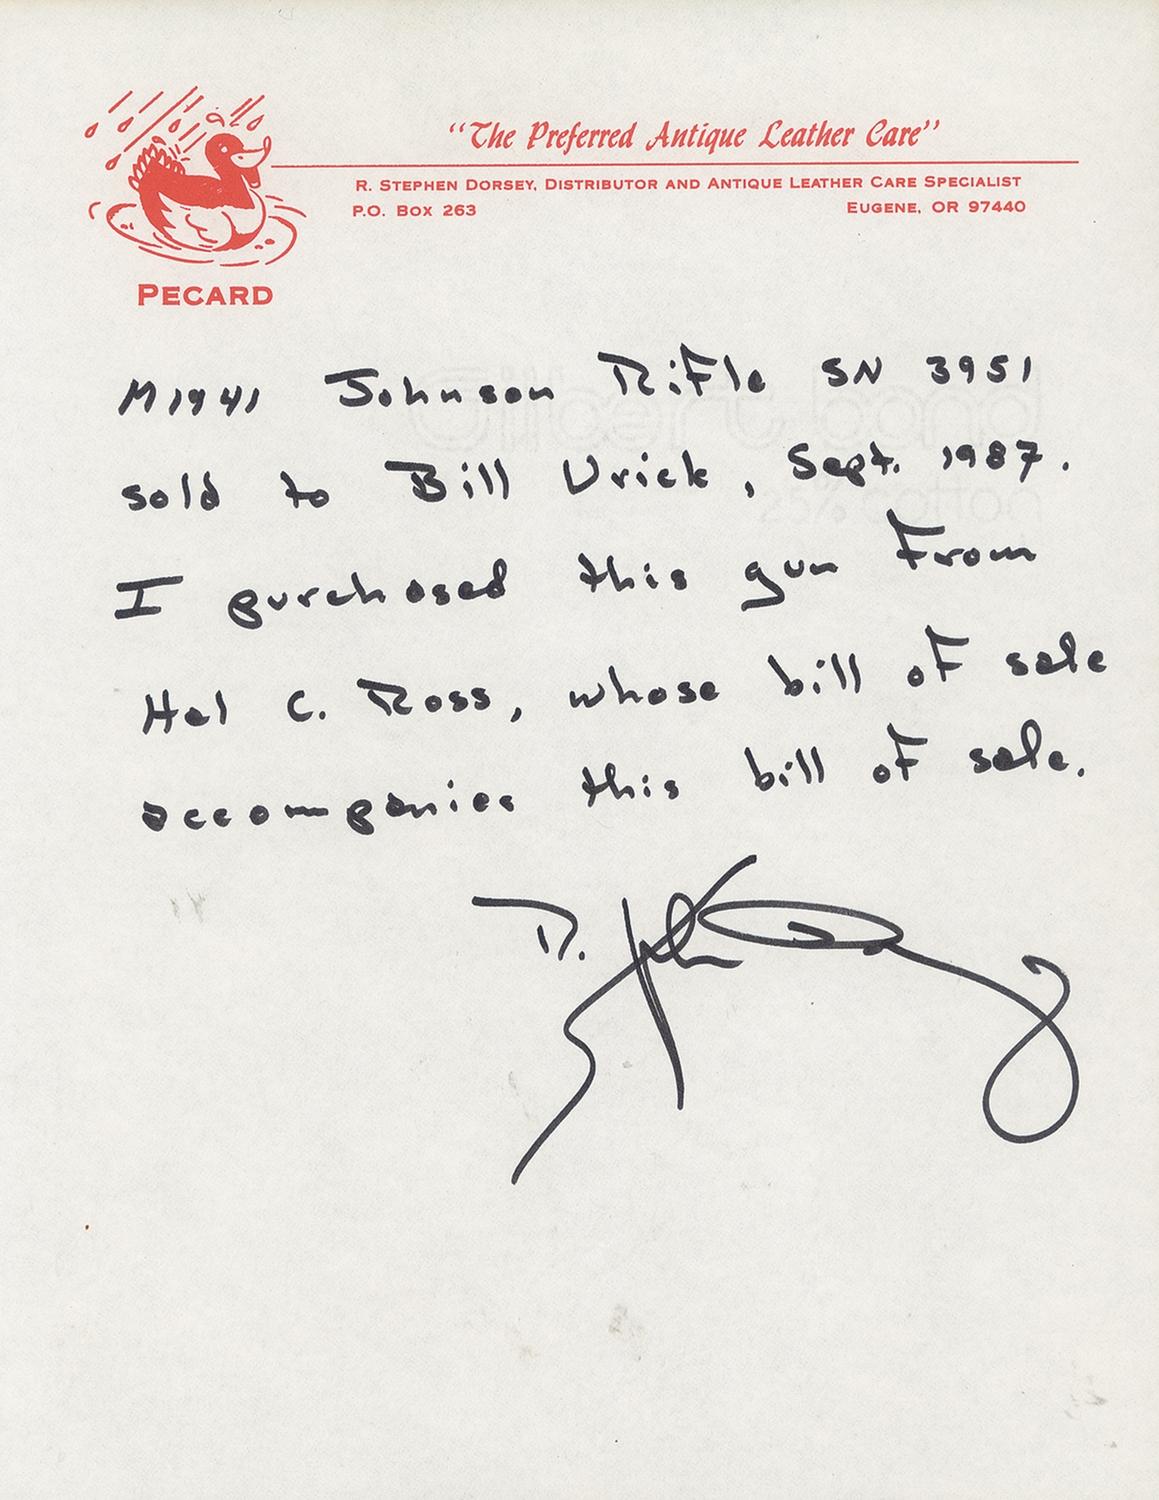 “The Preferred Antique Leather Care”
R. Stephen Dorsey, Distributor and Antique Leather Care Specialist
P.O. Box 263 Eugene, OR 97440
PECARD
M1941 Johnson Rifle SN 3951
sold to Bill Urick, Sept. 1987.
I purchased this gun from
Hal C. Ross, whose bill of sale
accompanies this bill of sale.
R. Stephen Dorsey
Gilbert bond
25% cotton